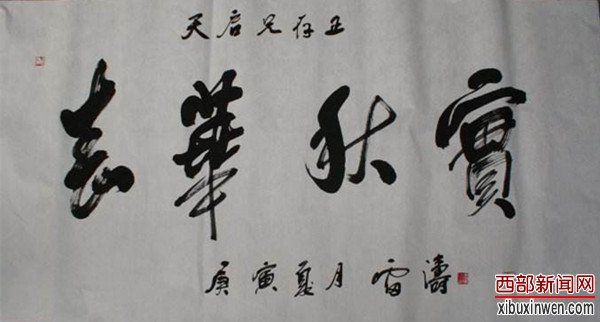 天启兄存正
春華秋實
庚寅夏月 雷濤
西部新闻网
xibuxinwen.com